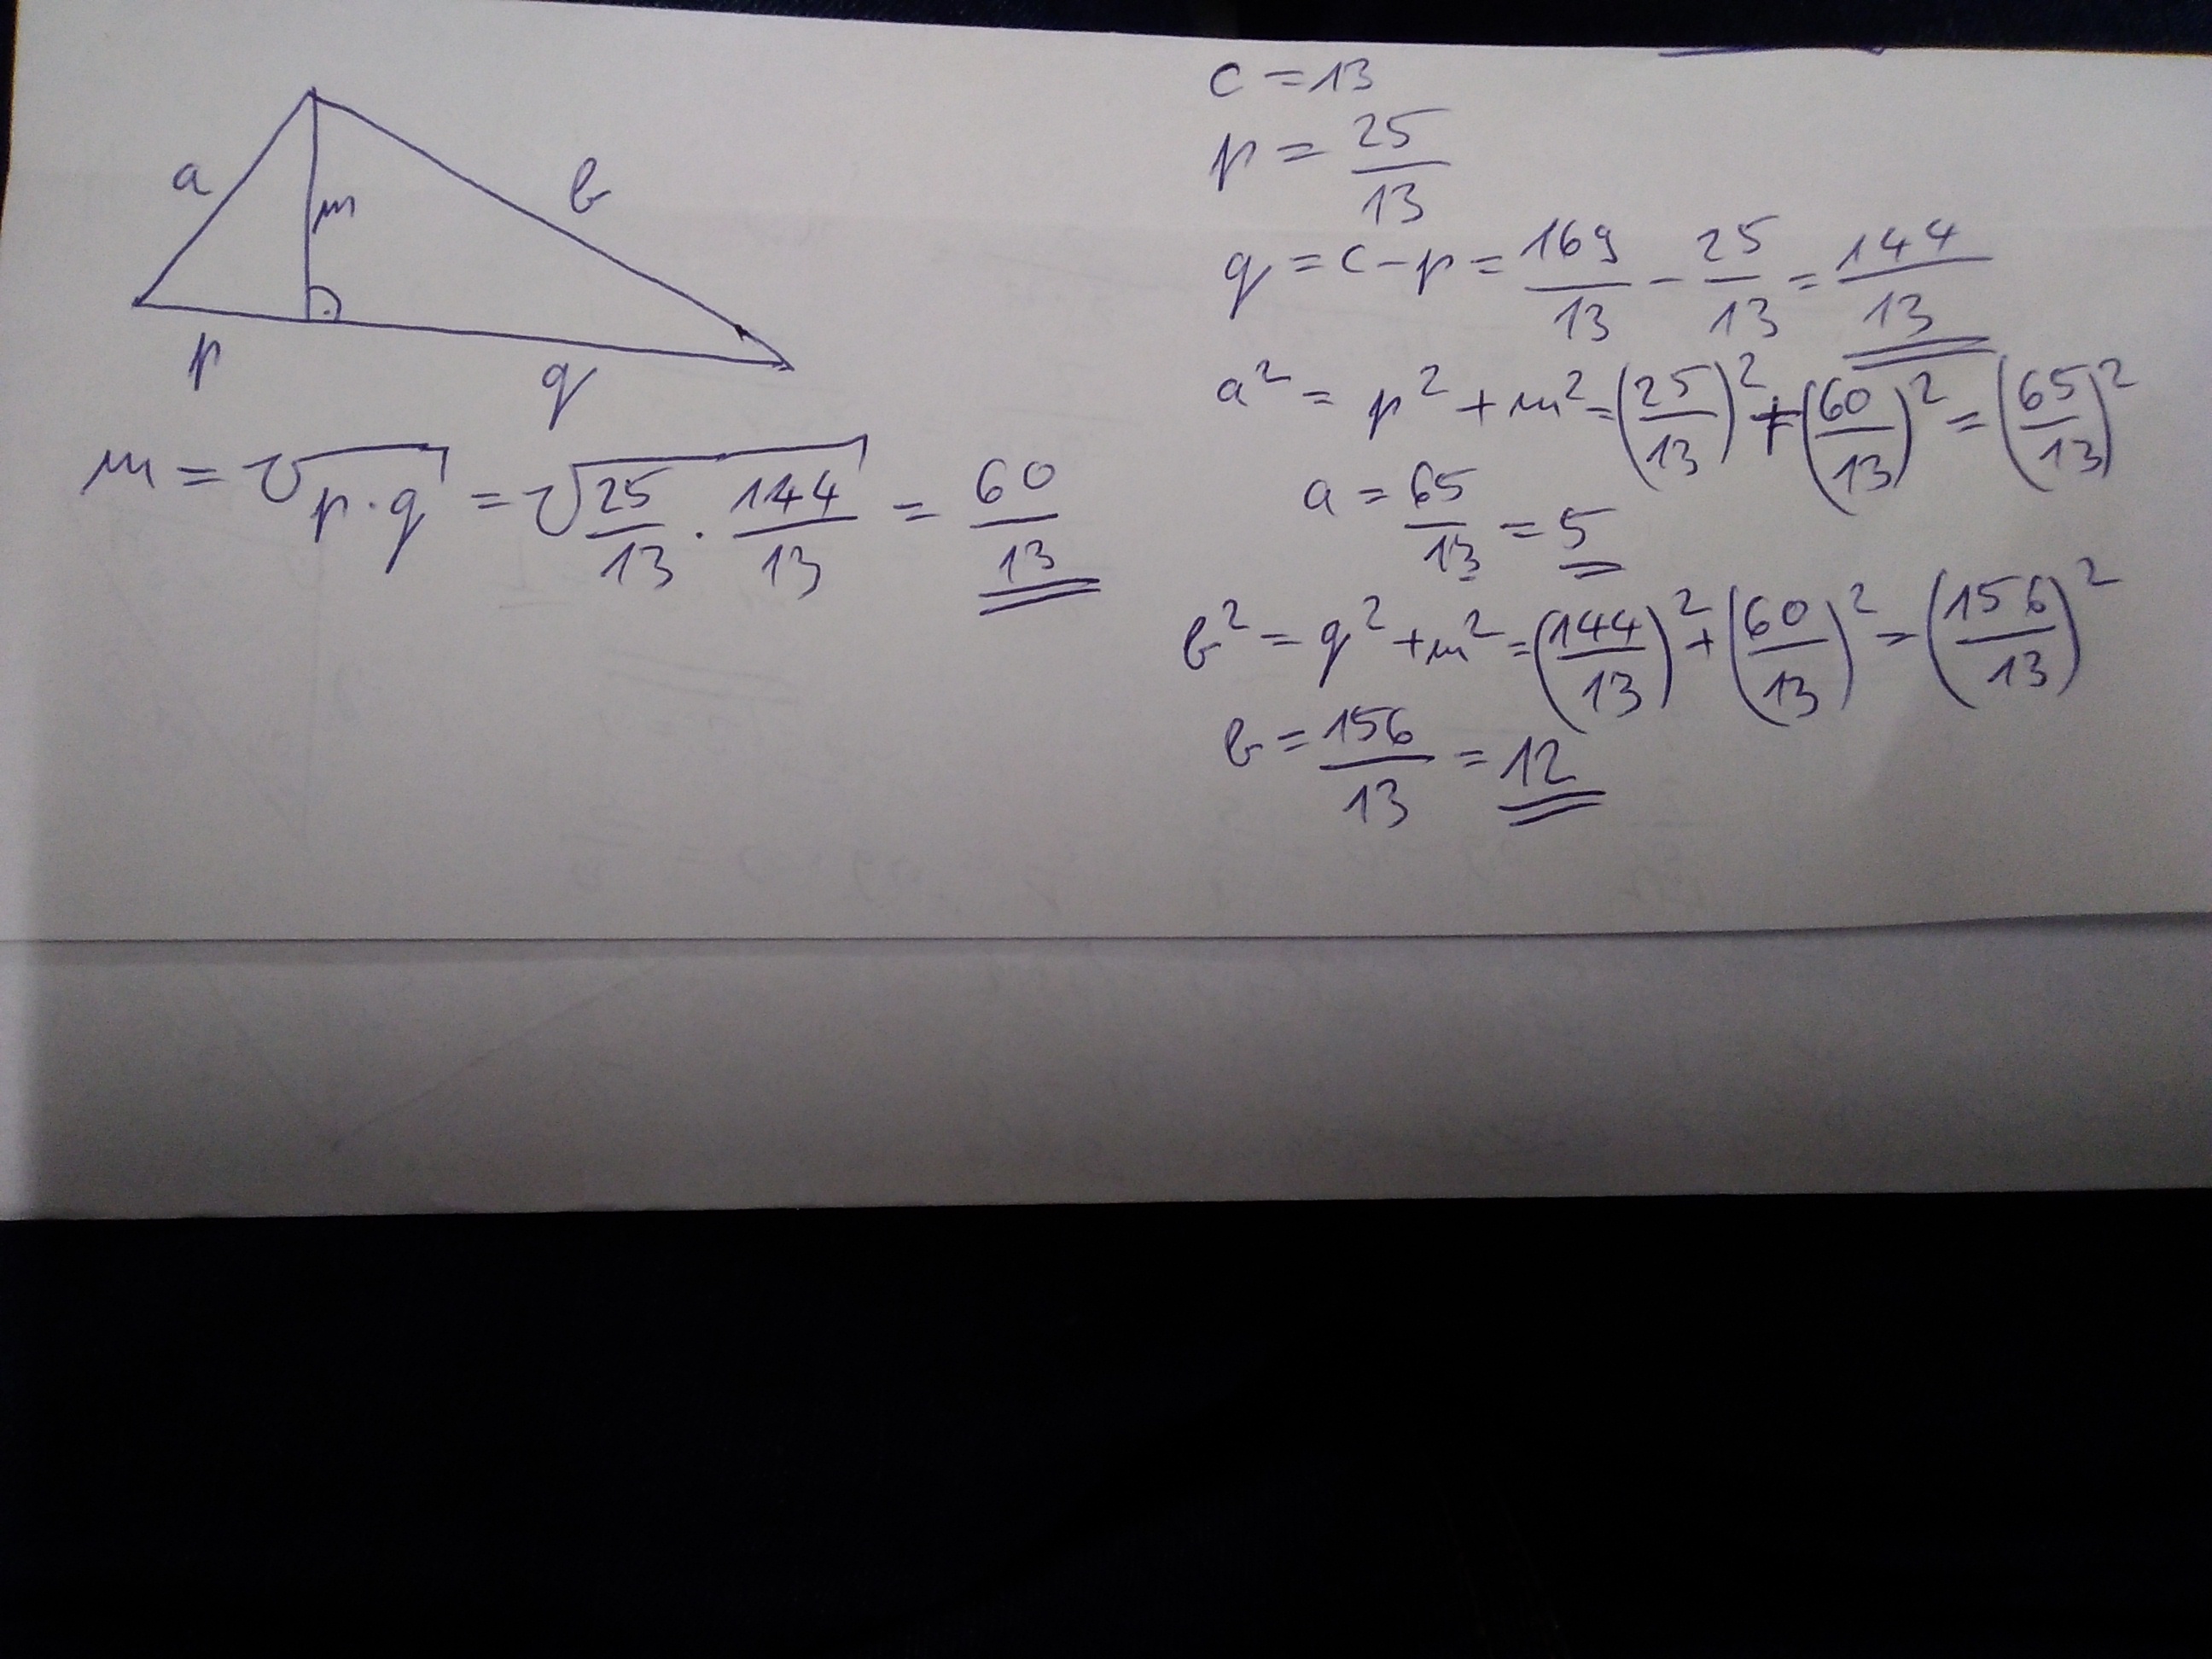 a
m
b
p
q
m = √p·q = √25/13 · 144/13 = 60/13
c = 13
p = 25/13
q = c - p = 169/13 - 25/13 = 144/13
a² = p² + m² = (25/13)² + (60/13)² = (65/13)²
a = 65/13 = 5
b² = q² + m² = (144/13)² + (60/13)² = (156/13)²
b = 156/13 = 12